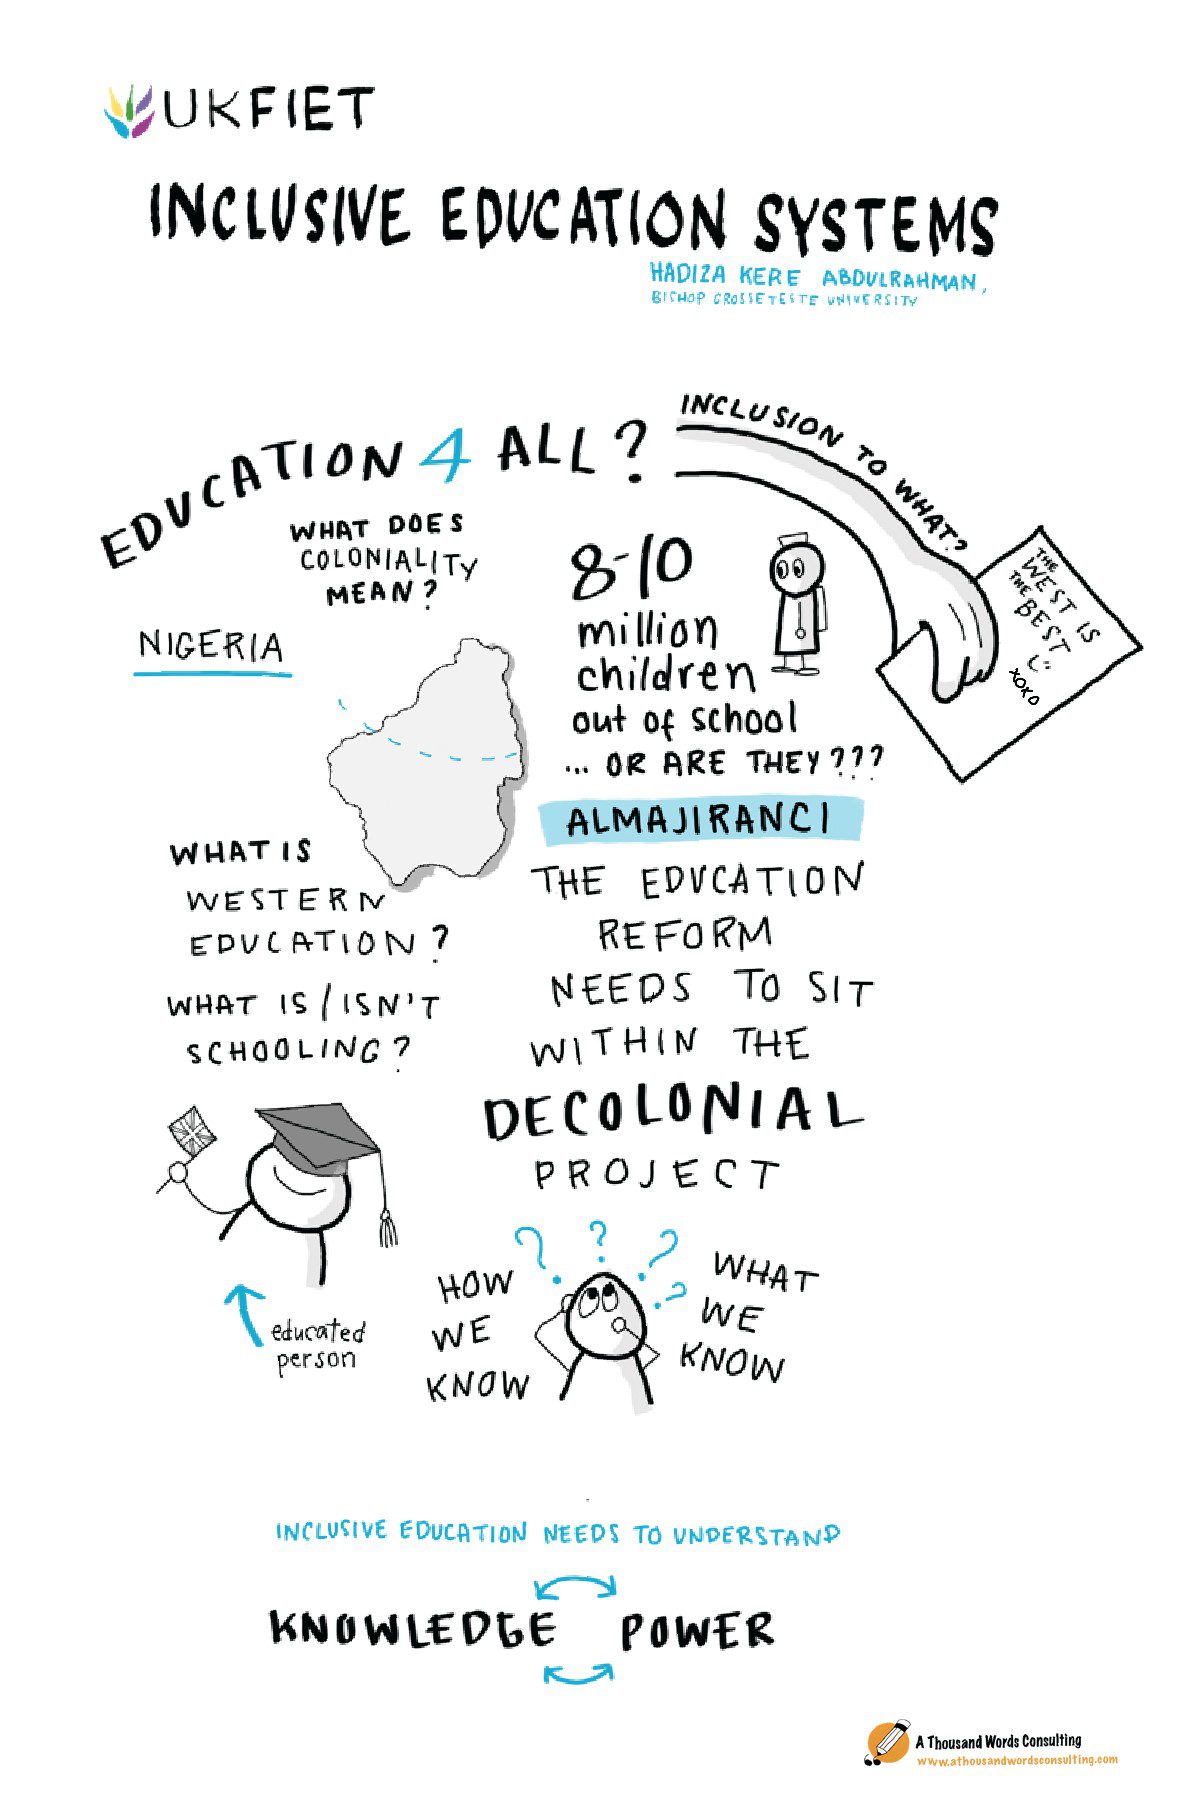 UKFIET
INCLUSIVE EDUCATION SYSTEMS
HADIZA KERE ABDULRAHMAN,
BISHOP GROSSETESTE UNIVERSITY
EDUCATION 4 ALL?
INCLUSION TO WHAT?
THE
WEST IS
THE
BEST
XOXO
WHAT DOES
COLONIALITY
MEAN?
NIGERIA
8-10
million
children
out of school
... OR ARE THEY???
ALMAJIRANCI
THE EDUCATION
REFORM
NEEDS TO SIT
WITHIN THE
DECOLONIAL
PROJECT
WHAT IS
WESTERN
EDUCATION?
WHAT IS/ISN'T
SCHOOLING?
educated
person
HOW
WE
KNOW
? ? ? ?
WHAT
WE
KNOW
INCLUSIVE EDUCATION NEEDS TO UNDERSTAND
KNOWLEDGE POWER
A Thousand Words Consulting
www.athousandwordsconsulting.com